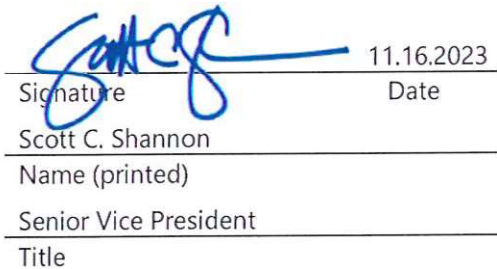 Scott C S 11.16.2023
Signature Date
Scott C. Shannon
Name (printed)
Senior Vice President
Title